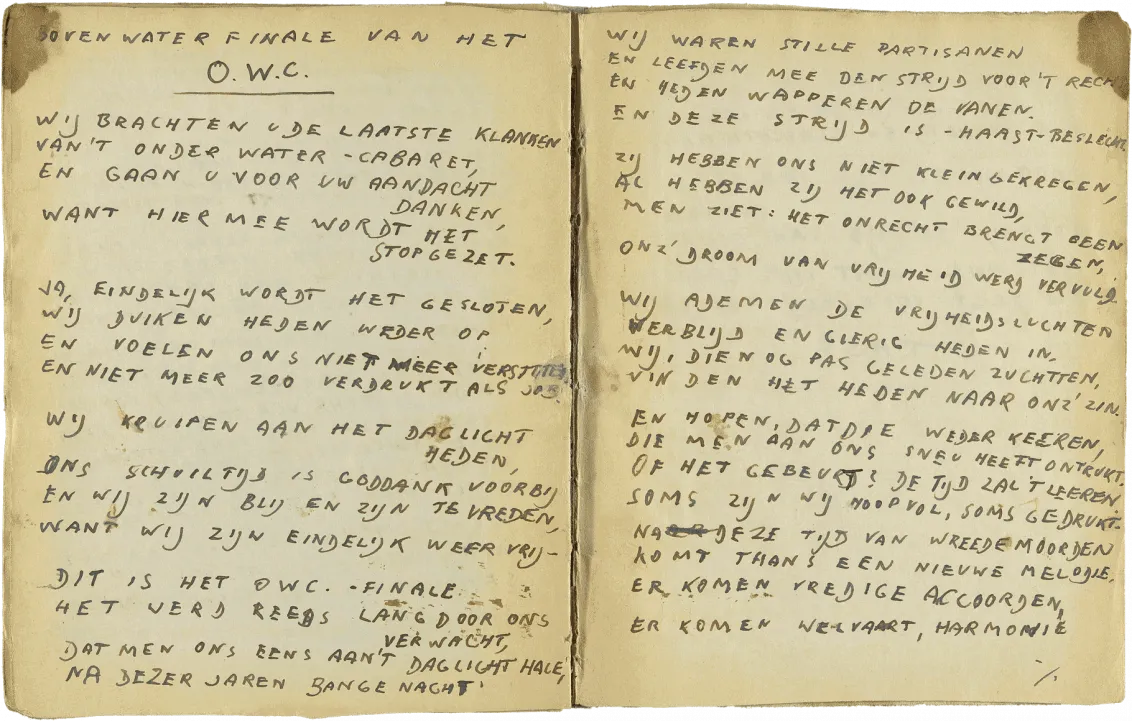 BOVENWATER FINALE VAN HET
O.W.C.
WIJ BRACHTEN U DE LAATSTE KLANKEN
VAN'T ONDER WATER-CABARET,
EN GAAN U VOOR UW AANDACHT
DANKEN,
WANT HIER MEE WORDT HET
STOPGEZET.
JA, EINDELIJK WORDT HET GESLOTEN,
WIJ DUIKEN HEDEN WEDER OP
EN VOELEN ONS NIET MEER
EN NIET MEER ZOO VERDRUKT ALS JOB.
WIJ KRUIPEN AAN HET DAGLICHT
HEDEN,
ONS SCHUILTIJD IS GODDANK VOORBIJ
EN WIJ ZIJN BLIJ EN ZIJN TEVREDEN,
WANT WIJ ZIJN EINDELIJK WEER VRIJ-
DIT IS HET OWC.-FINALE
HET WERD REEDS LANG DOOR ONS
VERWACHT,
DAT MEN ONS EENS AAN'T DAGLICHT HALE,
NA DEZER JAREN BANGE NACHT'
WIJ WAREN STILLE PARTISANEN
EN LEEFDEN MEE DEN STRIJD VOOR'T RECHT
EN HEDEN WAPPEREN DE VANEN.
EN DEZE STRIJD IS -HAAST-BESLECHT.
ZIJ HEBBEN ONS NIET KLEIN GEKREGEN,
AL HEBBEN ZIJ HET OOK GEWILD,
MEN ZIET: HET ONRECHT BRENGT GEEN
ZEGEN,
ONZ' DROOM VAN VRIJHEID WERD VERVULD.
WIJ ADEMEN DE VRIJHEIDSLUCHTEN
VERBLIJD EN GIERIG HEDEN IN.
WIJ, DIE NOG PAS GELEDEN ZUCHTTEN,
VINDEN HET HEDEN NAAR ONZ' ZIN.
EN HOPEN, DAT DIE WEDER KEEREN,
DIE MEN AAN ONS SNEU HEEFT ONTRUKT.
OF HET GEBEURT? DE TIJD ZAL'T LEEREN.
SOMS ZIJN WIJ HOOPVOL, SOMS GEDRUKT.
NA DEZE TIJD VAN WREEDE MOORDEN
KOMT THANS EEN NIEUWE MELODIE.
ER KOMEN VREDIGE ACCOORDEN,
ER KOMEN WELVAART, HARMONIE
·/.